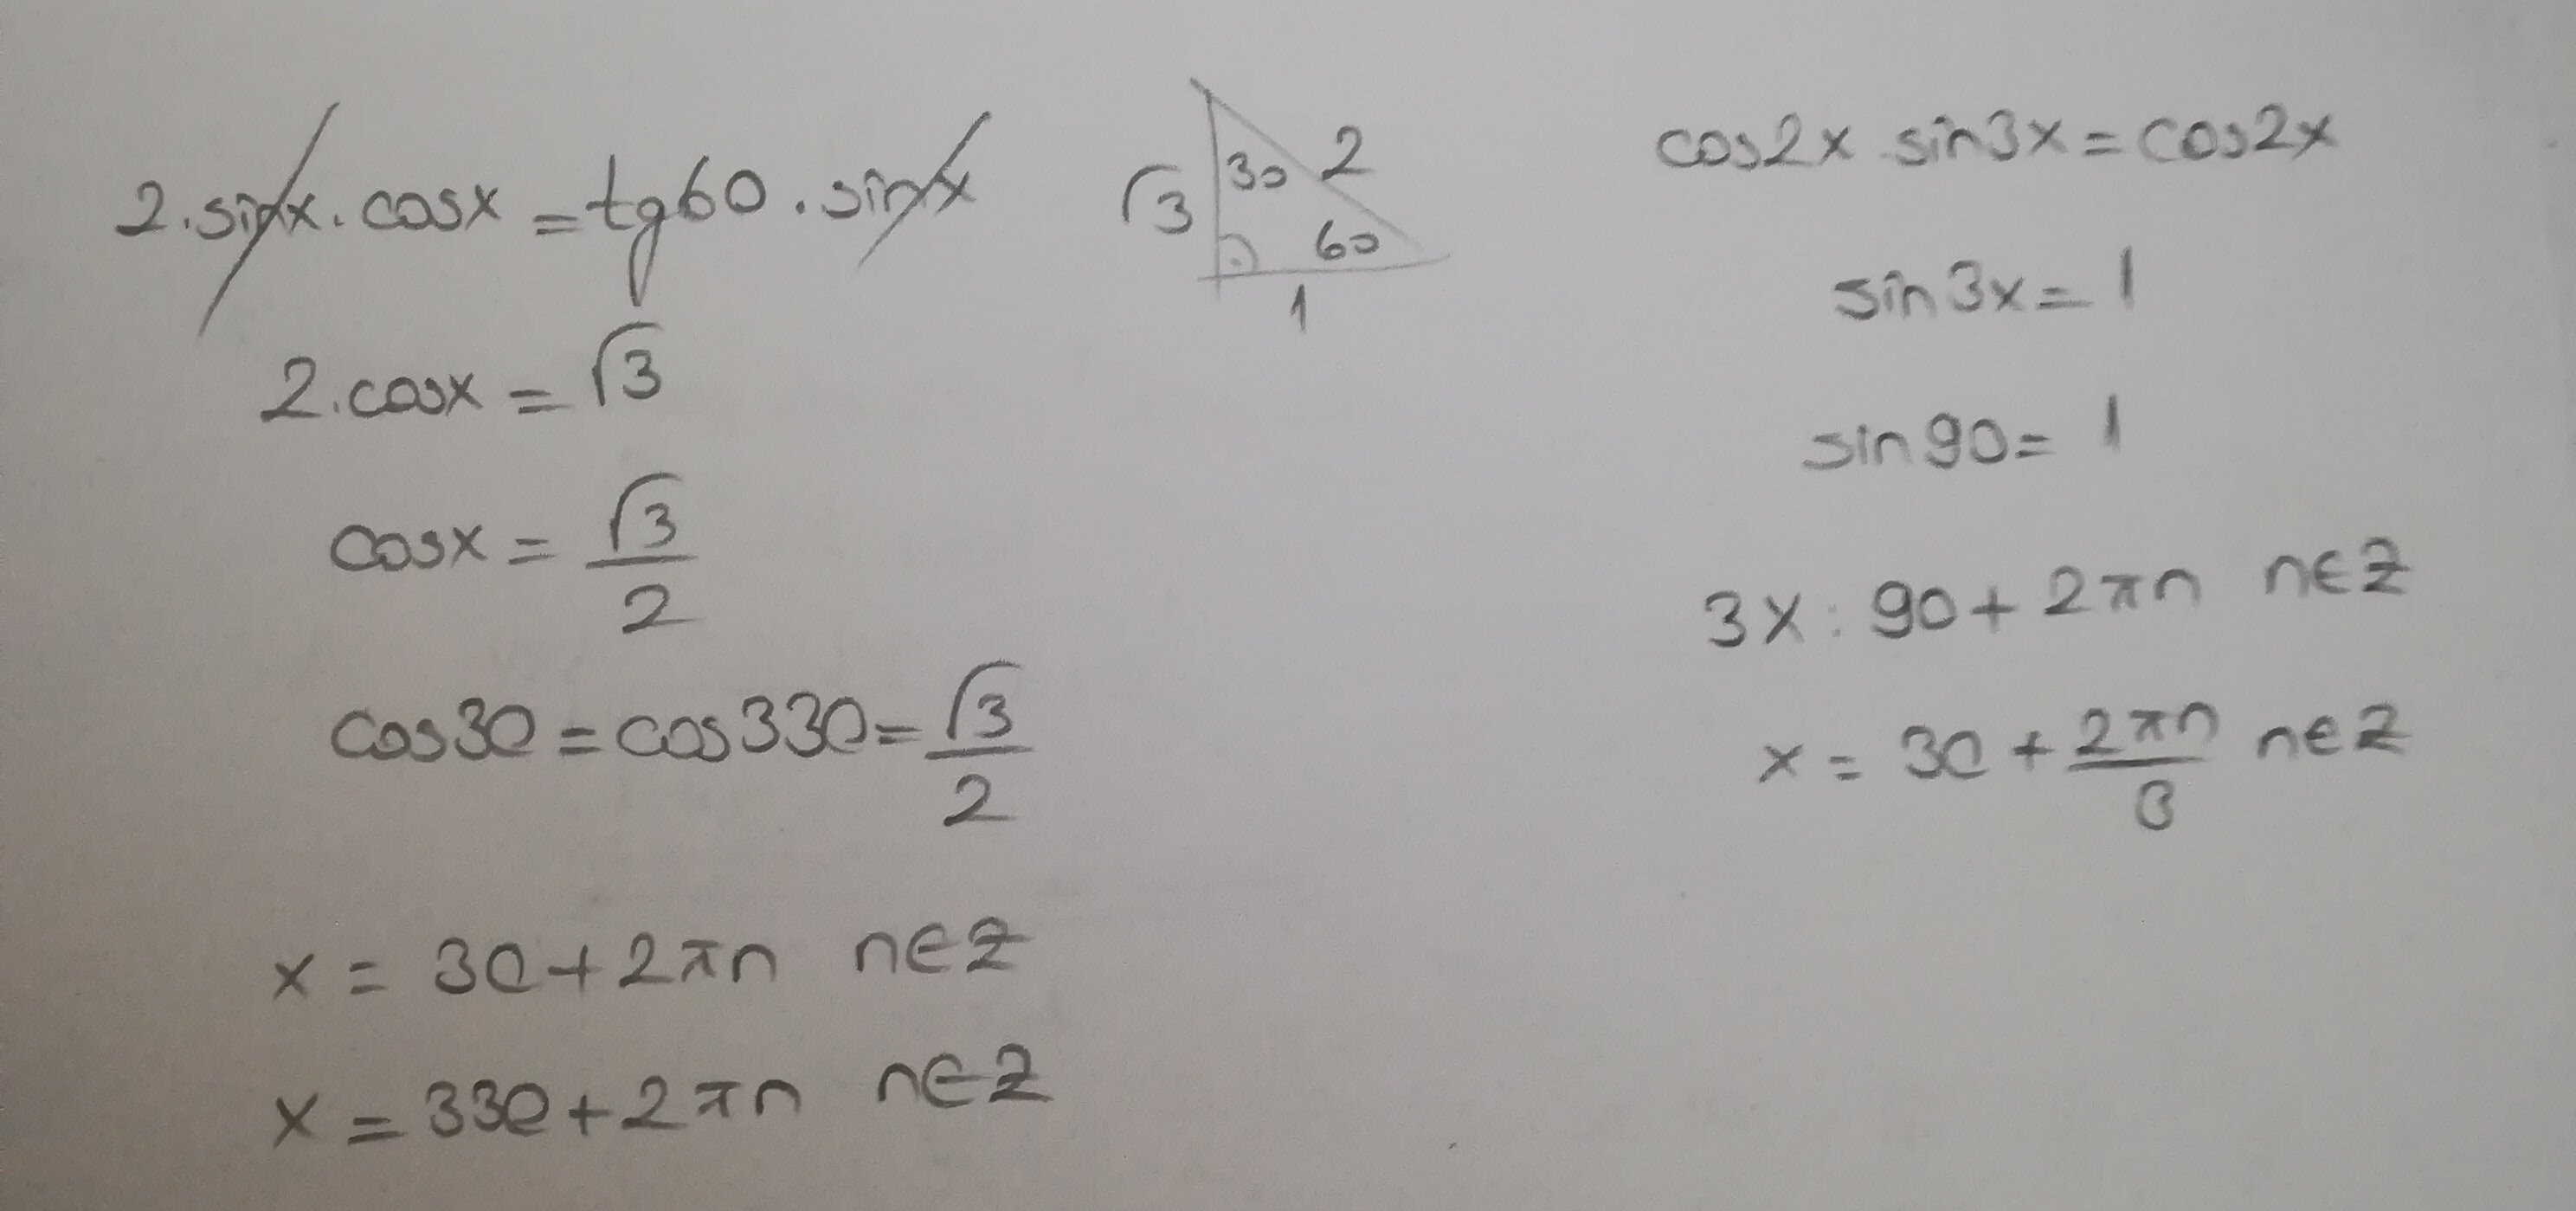 2.sinx.cosx = tg60.sinx
√3 30 2
60
1
2.cosx = √3
cosx = √3/2
cos30 = cos330 = √3/2
x = 30+2πn n∈Z
x = 330+2πn n∈Z
cos2x.sin3x = cos2x
sin3x = 1
sin90 = 1
3x: 90+2πn n∈Z
x = 30+2πn/3 n∈Z